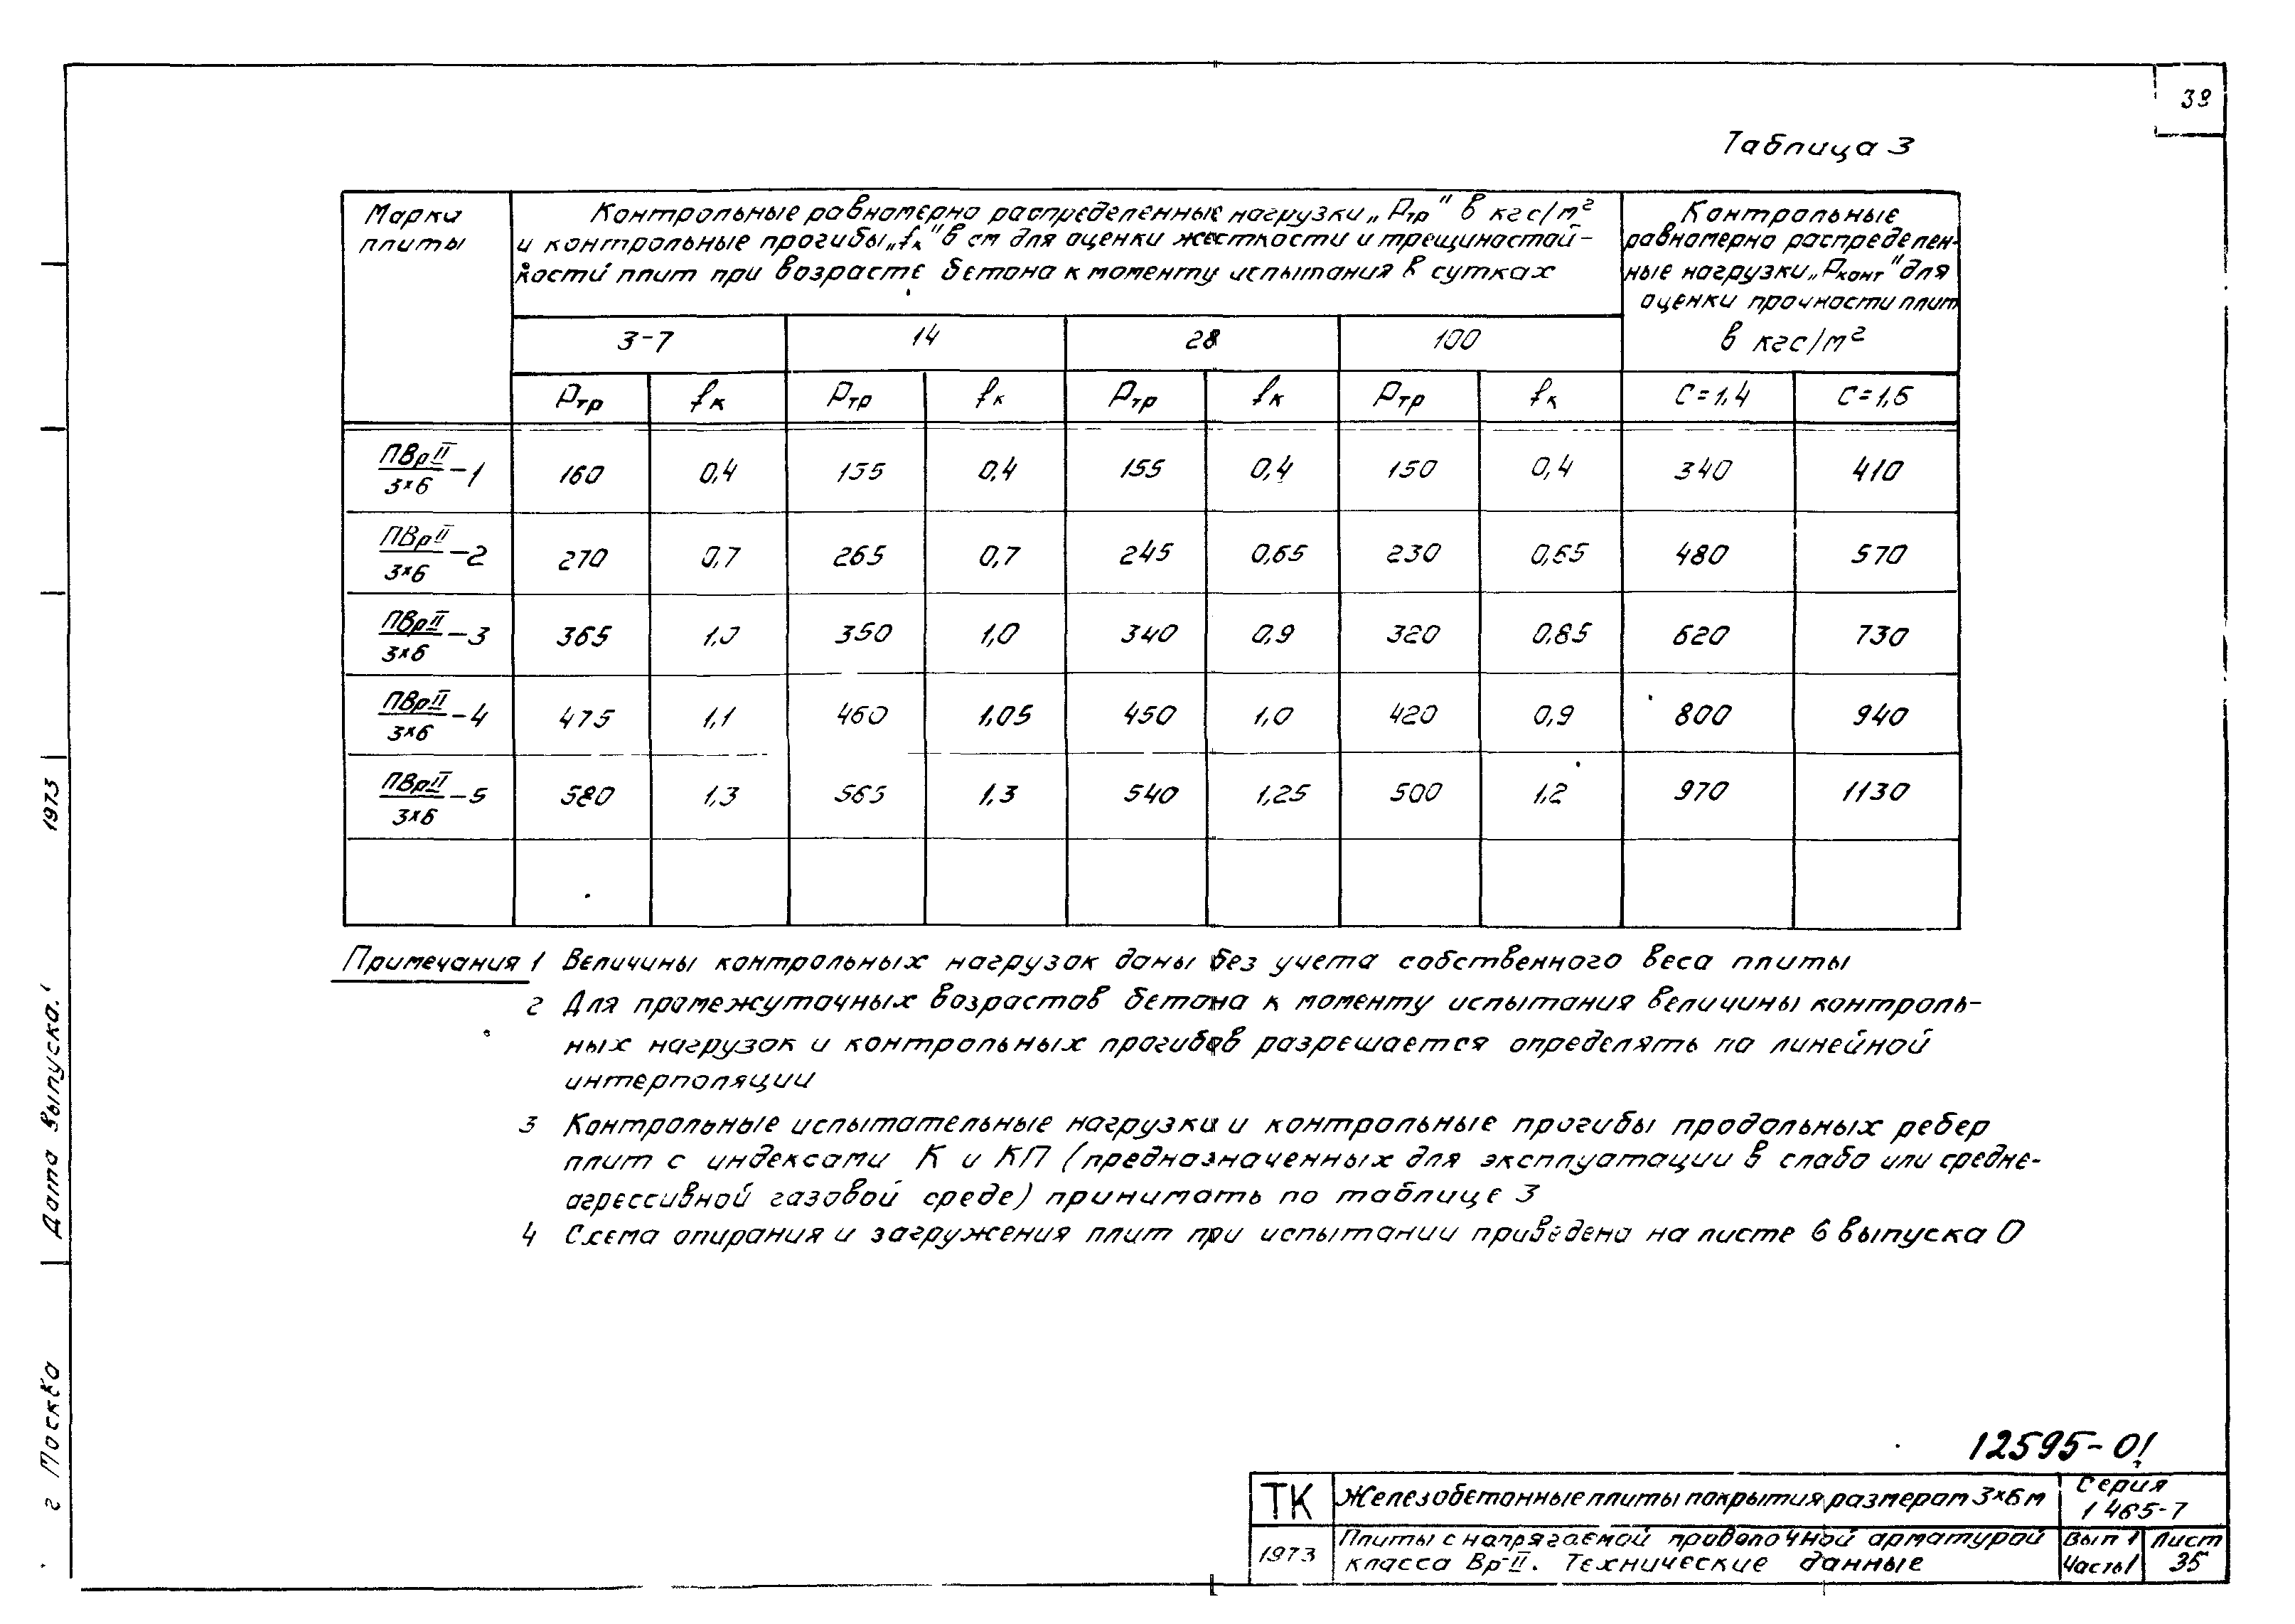 39
Таблица 3
Марка плиты
Контрольные равномерно распределенные нагрузки „Ртр" в кгс/м²
и контрольные прогибы „fк" в см для оценки жесткости и трещиностой-
кости плит при возрасте бетона к моменту испытания в сутках
Контрольные
равномерно распределен-
ные нагрузки „Рконт" для
оценки прочности плит
в кгс/м²
3-7 14 28 100
Ртр fк Ртр fк Ртр fк Ртр fк С=1,4 С=1,6
ПВрII/3×6 -1 160 0,4 155 0,4 155 0,4 150 0,4 340 410
ПВрII/3×6 -2 270 0,7 265 0,7 245 0,65 230 0,65 480 570
ПВрII/3×6 -3 365 1,0 350 1,0 340 0,9 320 0,85 620 730
ПВрII/3×6 -4 475 1,1 460 1,05 450 1,0 420 0,9 800 940
ПВрII/3×6 -5 580 1,3 565 1,3 540 1,25 500 1,2 970 1130
Примечания 1 Величины контрольных нагрузок даны без учета собственного веса плиты
2 Для промежуточных возрастов бетона к моменту испытания величины контроль-
ных нагрузок и контрольных прогибов разрешается определять по линейной
интерполяции
3 Контрольные испытательные нагрузки и контрольные прогибы продольных ребер
плит с индексами К и КП (предназначенных для эксплуатации в слабо или средне-
агрессивной газовой среде) принимать по таблице 3
4 Схема опирания и загружения плит при испытании приведена на листе 6 выпуска 0
г Москва Дата выпуска. 1973
12595-01
ТК
Железобетонные плиты покрытия размером 3×6 м
Серия
1 465-7
1973
Плиты с напрягаемой проволочной арматурой
класса Вр-II. Технические данные
Вып 1
Часть 1
Лист
35